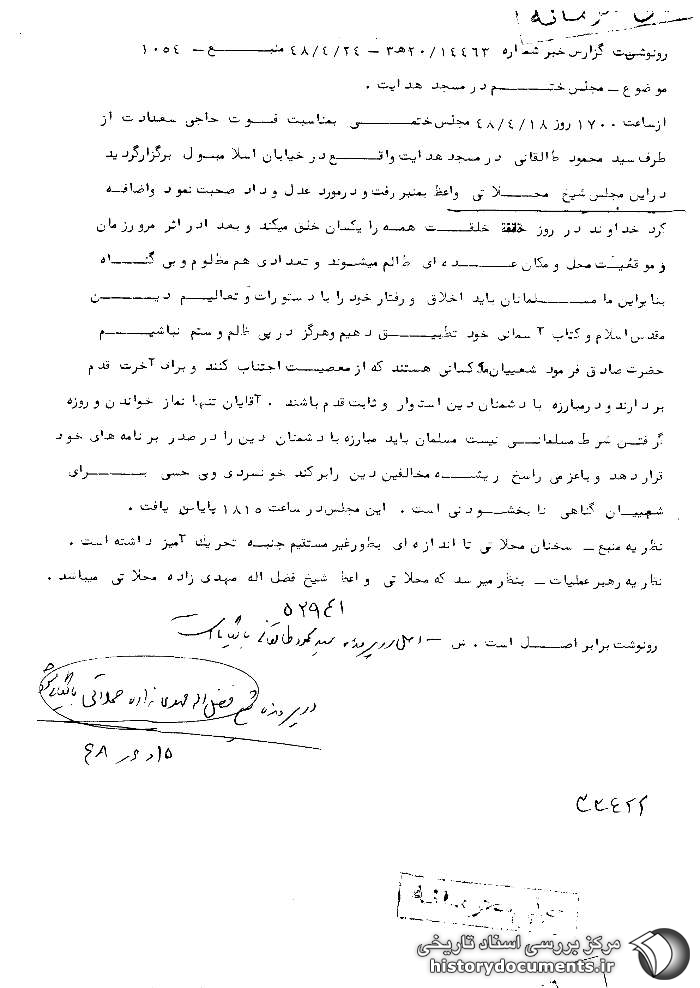 رونوشت گزارش خبر شماره ۲۰/۱۴۴۶۳هـ۳ – ۴۸/۴/۲۴ منبـــــع – ۱۰۵۴
موضوع – مجلس ختــــم در مسجد هدایت .
از ساعت ۱۷۰۰ روز ۴۸/۴/۱۸ مجلس ختمـــی بمناسبت فـوت حاجی سعادت از
طرف سید محمود طالقانی در مسجد هدایت واقـــع در خیابان اسلامبول برگزار گردید
در این مجلس شیخ محـــلاتی واعظ بمنبر رفت و در مورد عدل و داد صحبت نمود و اضافـه
کرد خداوند در روز خلقـــت همه را یکسان خلق میکند و بعد ادر اثر مرور زمان
و موقعیت محل و مکان عـــده ای ظالم میشوند و تعدادی هم مظلوم و بی گنــاه
بنابراین ما مســــلمانان باید اخلاق و رفتار خود را با دستورات و تعالیـــم دیـــن
مقدس اسلام و کتاب آسمانی خود تطبیـــق دهیم و هرگز در پی ظلم و ستم نباشیـــم
حضرت صادق فرمود شعییان ما کسانی هستند که از معصیـت اجتناب کنند و برای آخرت قدم
بردارند و در مبارزه با دشمنان دین استوار و ثابت قدم باشند . آقایان تنها نماز خواندن و روزه
گرفتـن شرط مسلمانـــی نیست مسلمان باید مبارزه با دشمنان دین را در صدر برنامه های خود
قرار دهد و باعزمی راسخ ریشـــه مخالفین دین رابر کند خونسردی وبی حسی بـــرای
شعییـان گناهی نابخشـــودنی است . این مجلس در ساعت ۱۸۱۵ پایان یافت .
نظریه منبع – سخنان محلاتی تا اندازه ای بطور غیر مستقیم جنبه تحریك آمیز داشته است .
نظریه رهبر عملیات – بنظر میرسد که محلاتی واعظ شیخ فضل اله مهدی زاده محلاتی میباشد .
۵۲۹۴۱
رونوشت برابر اصـل است . ض – اصل در پرونده سید محمود طالقانی بایگانی است
در پرونده شیخ فضل اله مهدی زاده محلاتی بایگانی شود
۳۳۴۲۲
مرکز بررسی اسناد تاریخی
historydocuments.ir